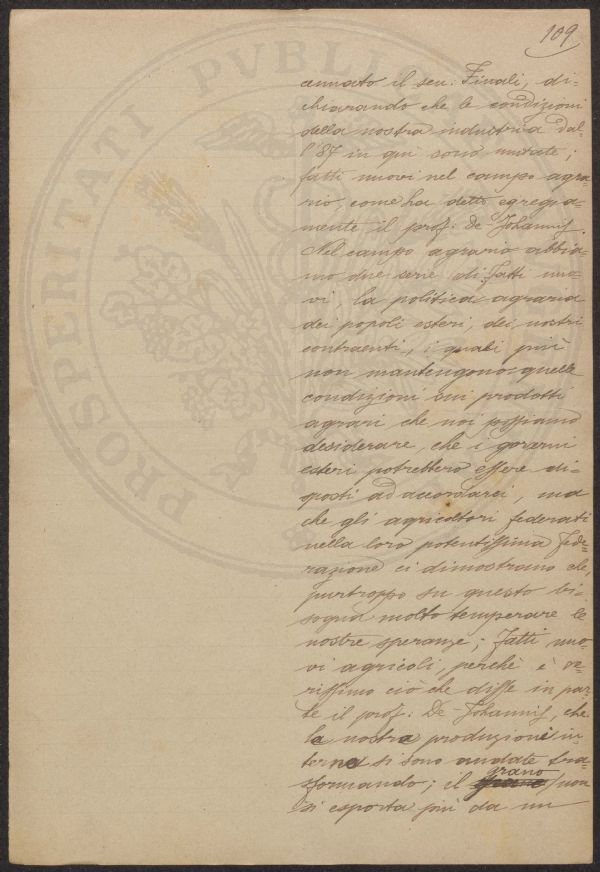 109
cennato il sen: Finali, di-
chiarando che le condizioni
della nostra industria dal-
l'87 in qui sono mutate;
fatti nuovi nel campo agra-
rio, come ha detto egregia-
mente il prof: de Johannis.
Nel campo agrario abbia-
mo due serie di fatti nuo-
vi, la politica agraria
dei popoli esteri, dei nostri
contraenti, i quali più
non mantengono quelle
condizioni sui prodotti
agrari che noi possiamo
desiderare, che i governi
esteri potrebbero essere di-
sposti ad accordarci, ma
che gli agricoltori federati
nella loro potentissima Fede-
razione ci dimostrano che,
purtroppo su questo bi-
sogna molto temperare le
nostre speranze; fatti nuo-
vi agricoli, perchè è ve-
rissimo ciò che disse in par-
te il prof: De Johannis, che
la nostra produzione in-
terna si sono andate tra-
sformando; il grano non
si esporta più da un
PROSPERITATI PVBLIC